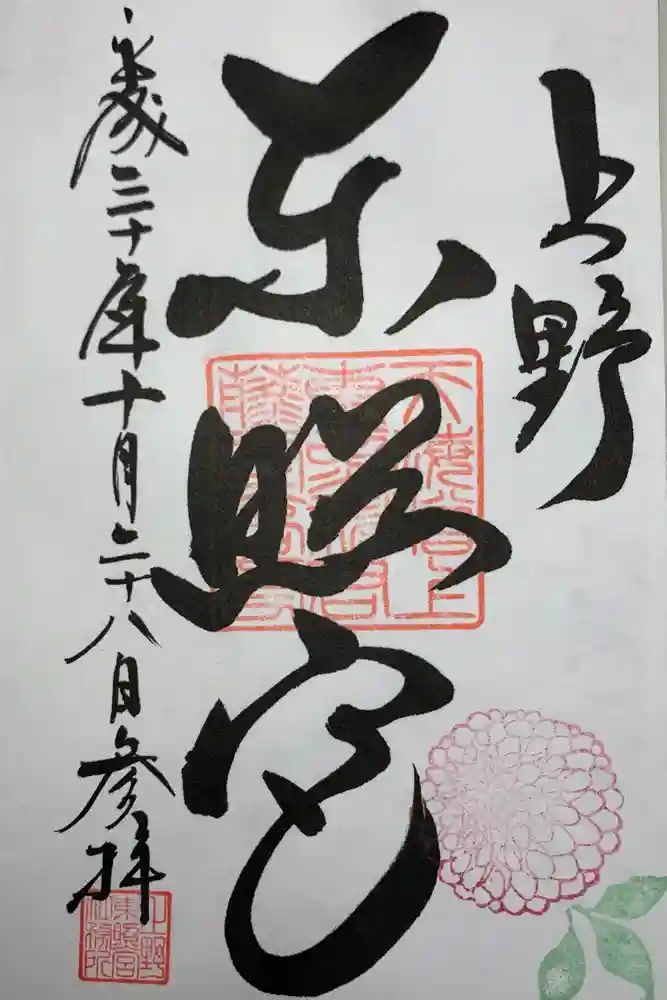 上野
東照宮
平成三十年十月二十八日参拝
上野
東照宮
社務所